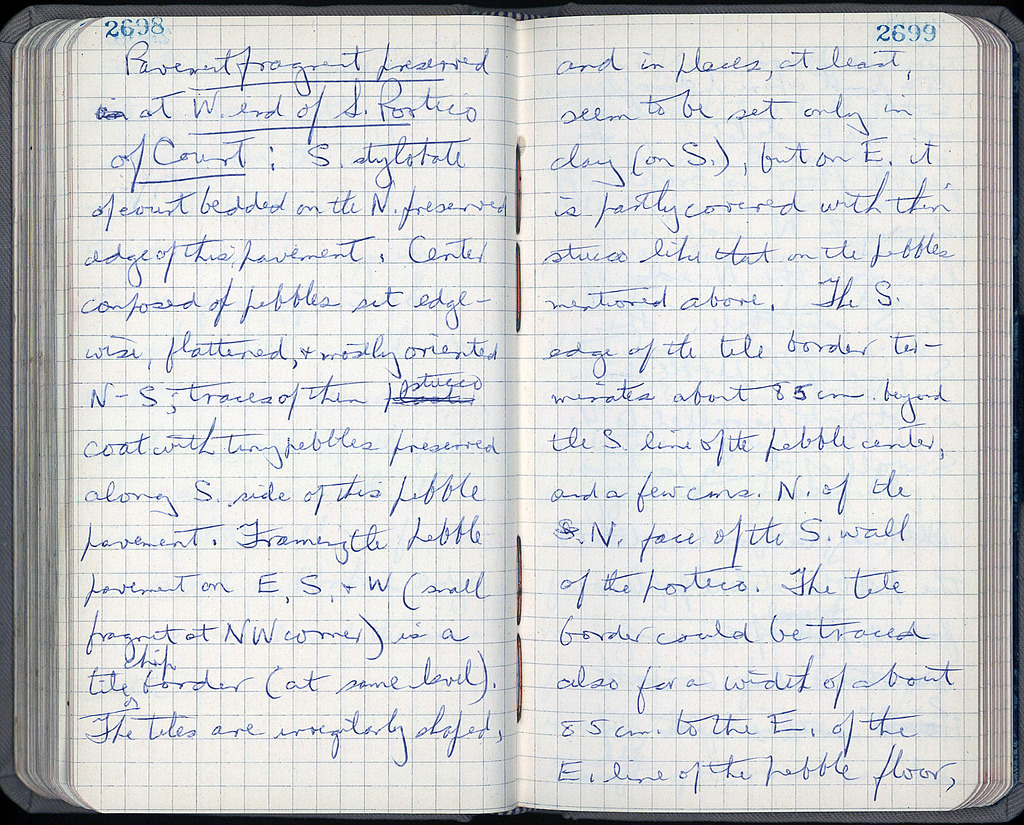 2698
Pavement fragment preserved
at W. end of S. Portico
of Court : S. stylobate
of court bedded on the N. preserved
edge of this pavement. Center
composed of pebbles set edge-
wise, flattened, & mostly oriented
N-S; traces of thin stucco
coat with tiny pebbles preserved
along S. side of this pebble
pavement. Framing the pebble
pavement on E, S, & W (small
fragment at NW corner) is a
chip
tile border (at same level).
The tiles are irregularly shaped,
2699
and in places, at least,
seem to be set only in
clay (on S.), but on E. it
is partly covered with thin
stucco like that on the pebbles
mentioned above. The S.
edge of the tile border ter-
minates about 85 cm. beyond
the S. line of the pebble center,
and a few cms. N. of the
N. face of the S. wall
of the portico. The tile
border could be traced
also for a width of about
85 cm. to the E. of the
E. line of the pebble floor,